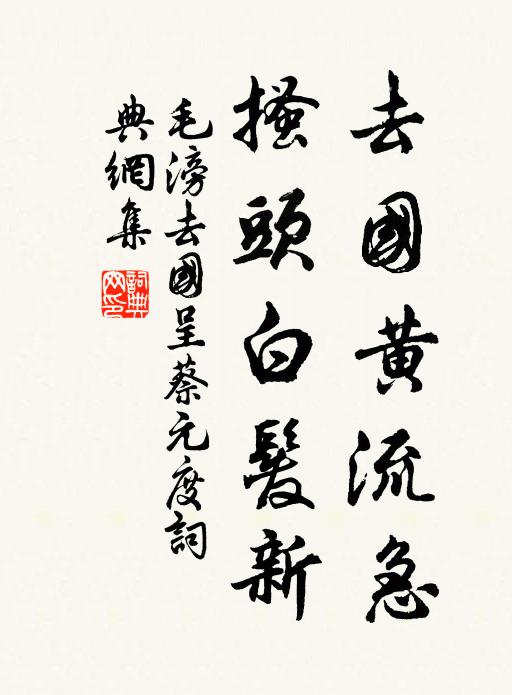 去國黃流急
搔頭白髮新
毛滂去國呈蔡元度詞
典網集
詞典網印